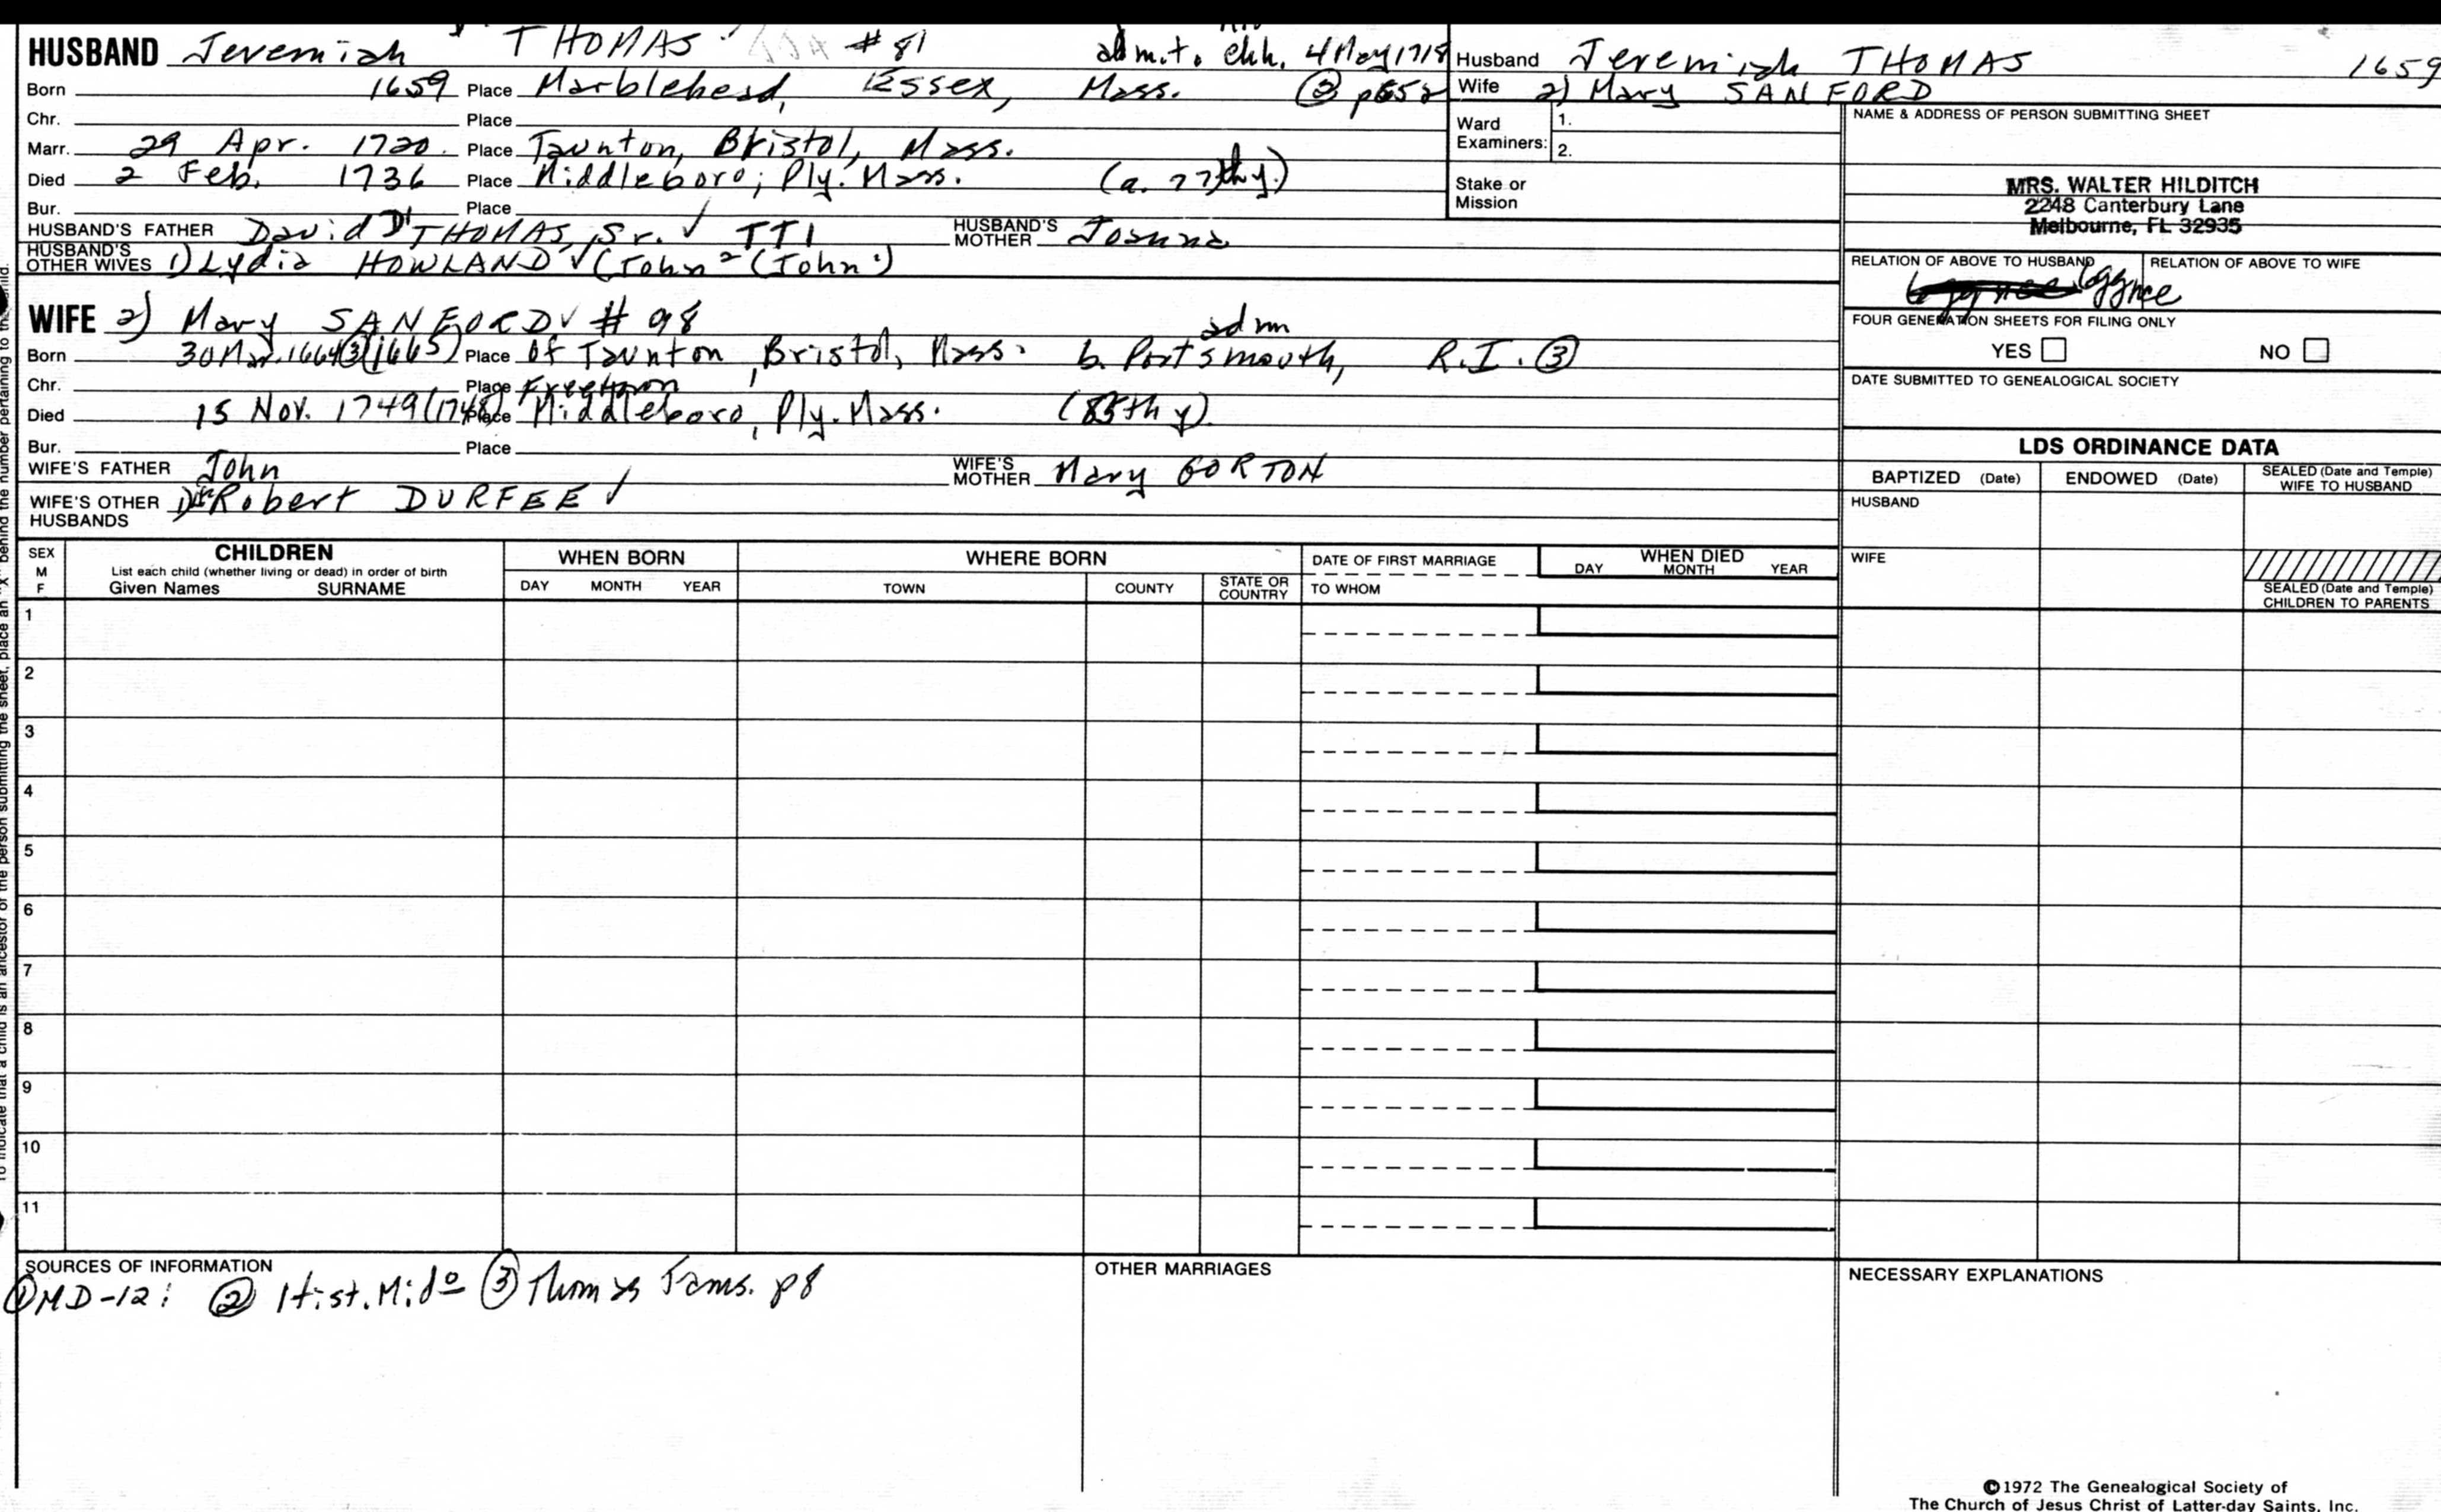 HUSBAND Jeremiah THOMAS # 81 adm. t. chh. 4 May 1718
Born 1659 Place Marblehead, Essex, Mass. ② p652
Chr. Place
Marr. 29 Apr. 1720. Place Taunton, Bristol, Mass.
Died 2 Feb. 1736 Place Middleboro, Ply. Mass. (a. 77thy.)
Bur. Place
HUSBAND'S FATHER David THOMAS, Sr. ✓ TT1 HUSBAND'S MOTHER Joanna
HUSBAND'S OTHER WIVES 1) Lydia HOWLAND ✓ (John² (John¹)
Husband Jeremiah THOMAS 1659
Wife 2) Mary SANFORD
Ward Examiners: 1.
2.
Stake or Mission
NAME & ADDRESS OF PERSON SUBMITTING SHEET
MRS. WALTER HILDITCH
2248 Canterbury Lane
Melbourne, FL 32935
RELATION OF ABOVE TO HUSBAND RELATION OF ABOVE TO WIFE
FOUR GENERATION SHEETS FOR FILING ONLY
YES NO
DATE SUBMITTED TO GENEALOGICAL SOCIETY
WIFE 2) Mary SANFORD ✓ # 98
Born 30 Mar. 1664 ③ (1665) Place of Taunton, Bristol, Mass. b. Portsmouth, R.I. ③
Chr. Place Freetown
Died 15 Nov. 1749 (1748) Place Middleboro, Ply. Mass. (85th y).
Bur. Place
WIFE'S FATHER John WIFE'S MOTHER Mary GORTON
WIFE'S OTHER HUSBANDS Robert DURFEE ✓
LDS ORDINANCE DATA
BAPTIZED (Date) ENDOWED (Date) SEALED (Date and Temple) WIFE TO HUSBAND
HUSBAND
WIFE
SEALED (Date and Temple) CHILDREN TO PARENTS
SEX M F CHILDREN List each child (whether living or dead) in order of birth Given Names SURNAME
WHEN BORN DAY MONTH YEAR
WHERE BORN TOWN COUNTY STATE OR COUNTRY
DATE OF FIRST MARRIAGE TO WHOM
WHEN DIED DAY MONTH YEAR
1
2
3
4
5
6
7
8
9
10
11
SOURCES OF INFORMATION
① MD-12: ② Hist. Mido ③ Thomas Fams. p8
OTHER MARRIAGES
NECESSARY EXPLANATIONS
©1972 The Genealogical Society of
The Church of Jesus Christ of Latter-day Saints, Inc.